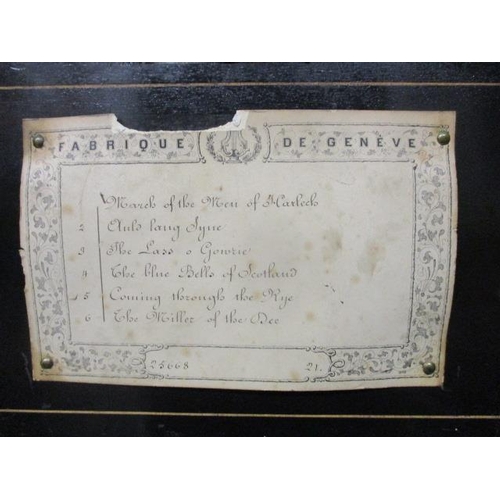 FABRIQUE DE GENÈVE
March of the Men of Harlech
2 Auld lang Syne
3 The Lass o Gowrie
4 The blue Bells of Scotland
5 Coming through the Rye
6 The Miller of the Dee
25668 21.